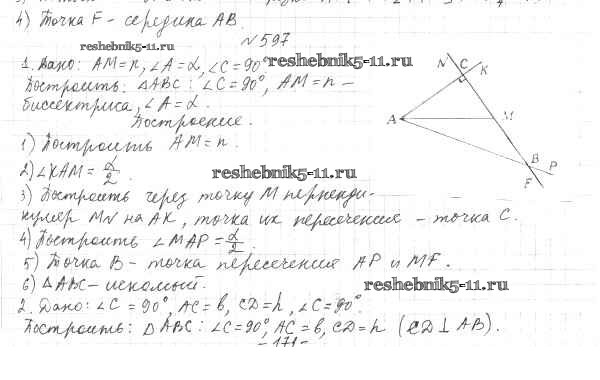 4) Точка F - середина AB.
№597
reshebnik5-11.ru
1. Дано: AM=n, ∠A=α, ∠C=90°
reshebnik5-11.ru
Построить: △ABC: ∠C=90°, AM=n -
биссектриса, ∠A=α.
Построение.
1) Построить AM=n.
2) ∠KAM=α/2.
reshebnik5-11.ru
3) Построить через точку M перпенди-
куляр MN на AK, точка их пересечения - точка C.
4) Построить ∠MAP=α/2.
5) Точка B - точка пересечения AP и MF.
6) △ABC - искомый.
reshebnik5-11.ru
2. Дано: ∠C=90°, AC=b, CD=h, ∠C=90°.
Построить: △ABC: ∠C=90°, AC=b, CD=h (CD⊥AB).
-171-
N C K
A M
B P
F